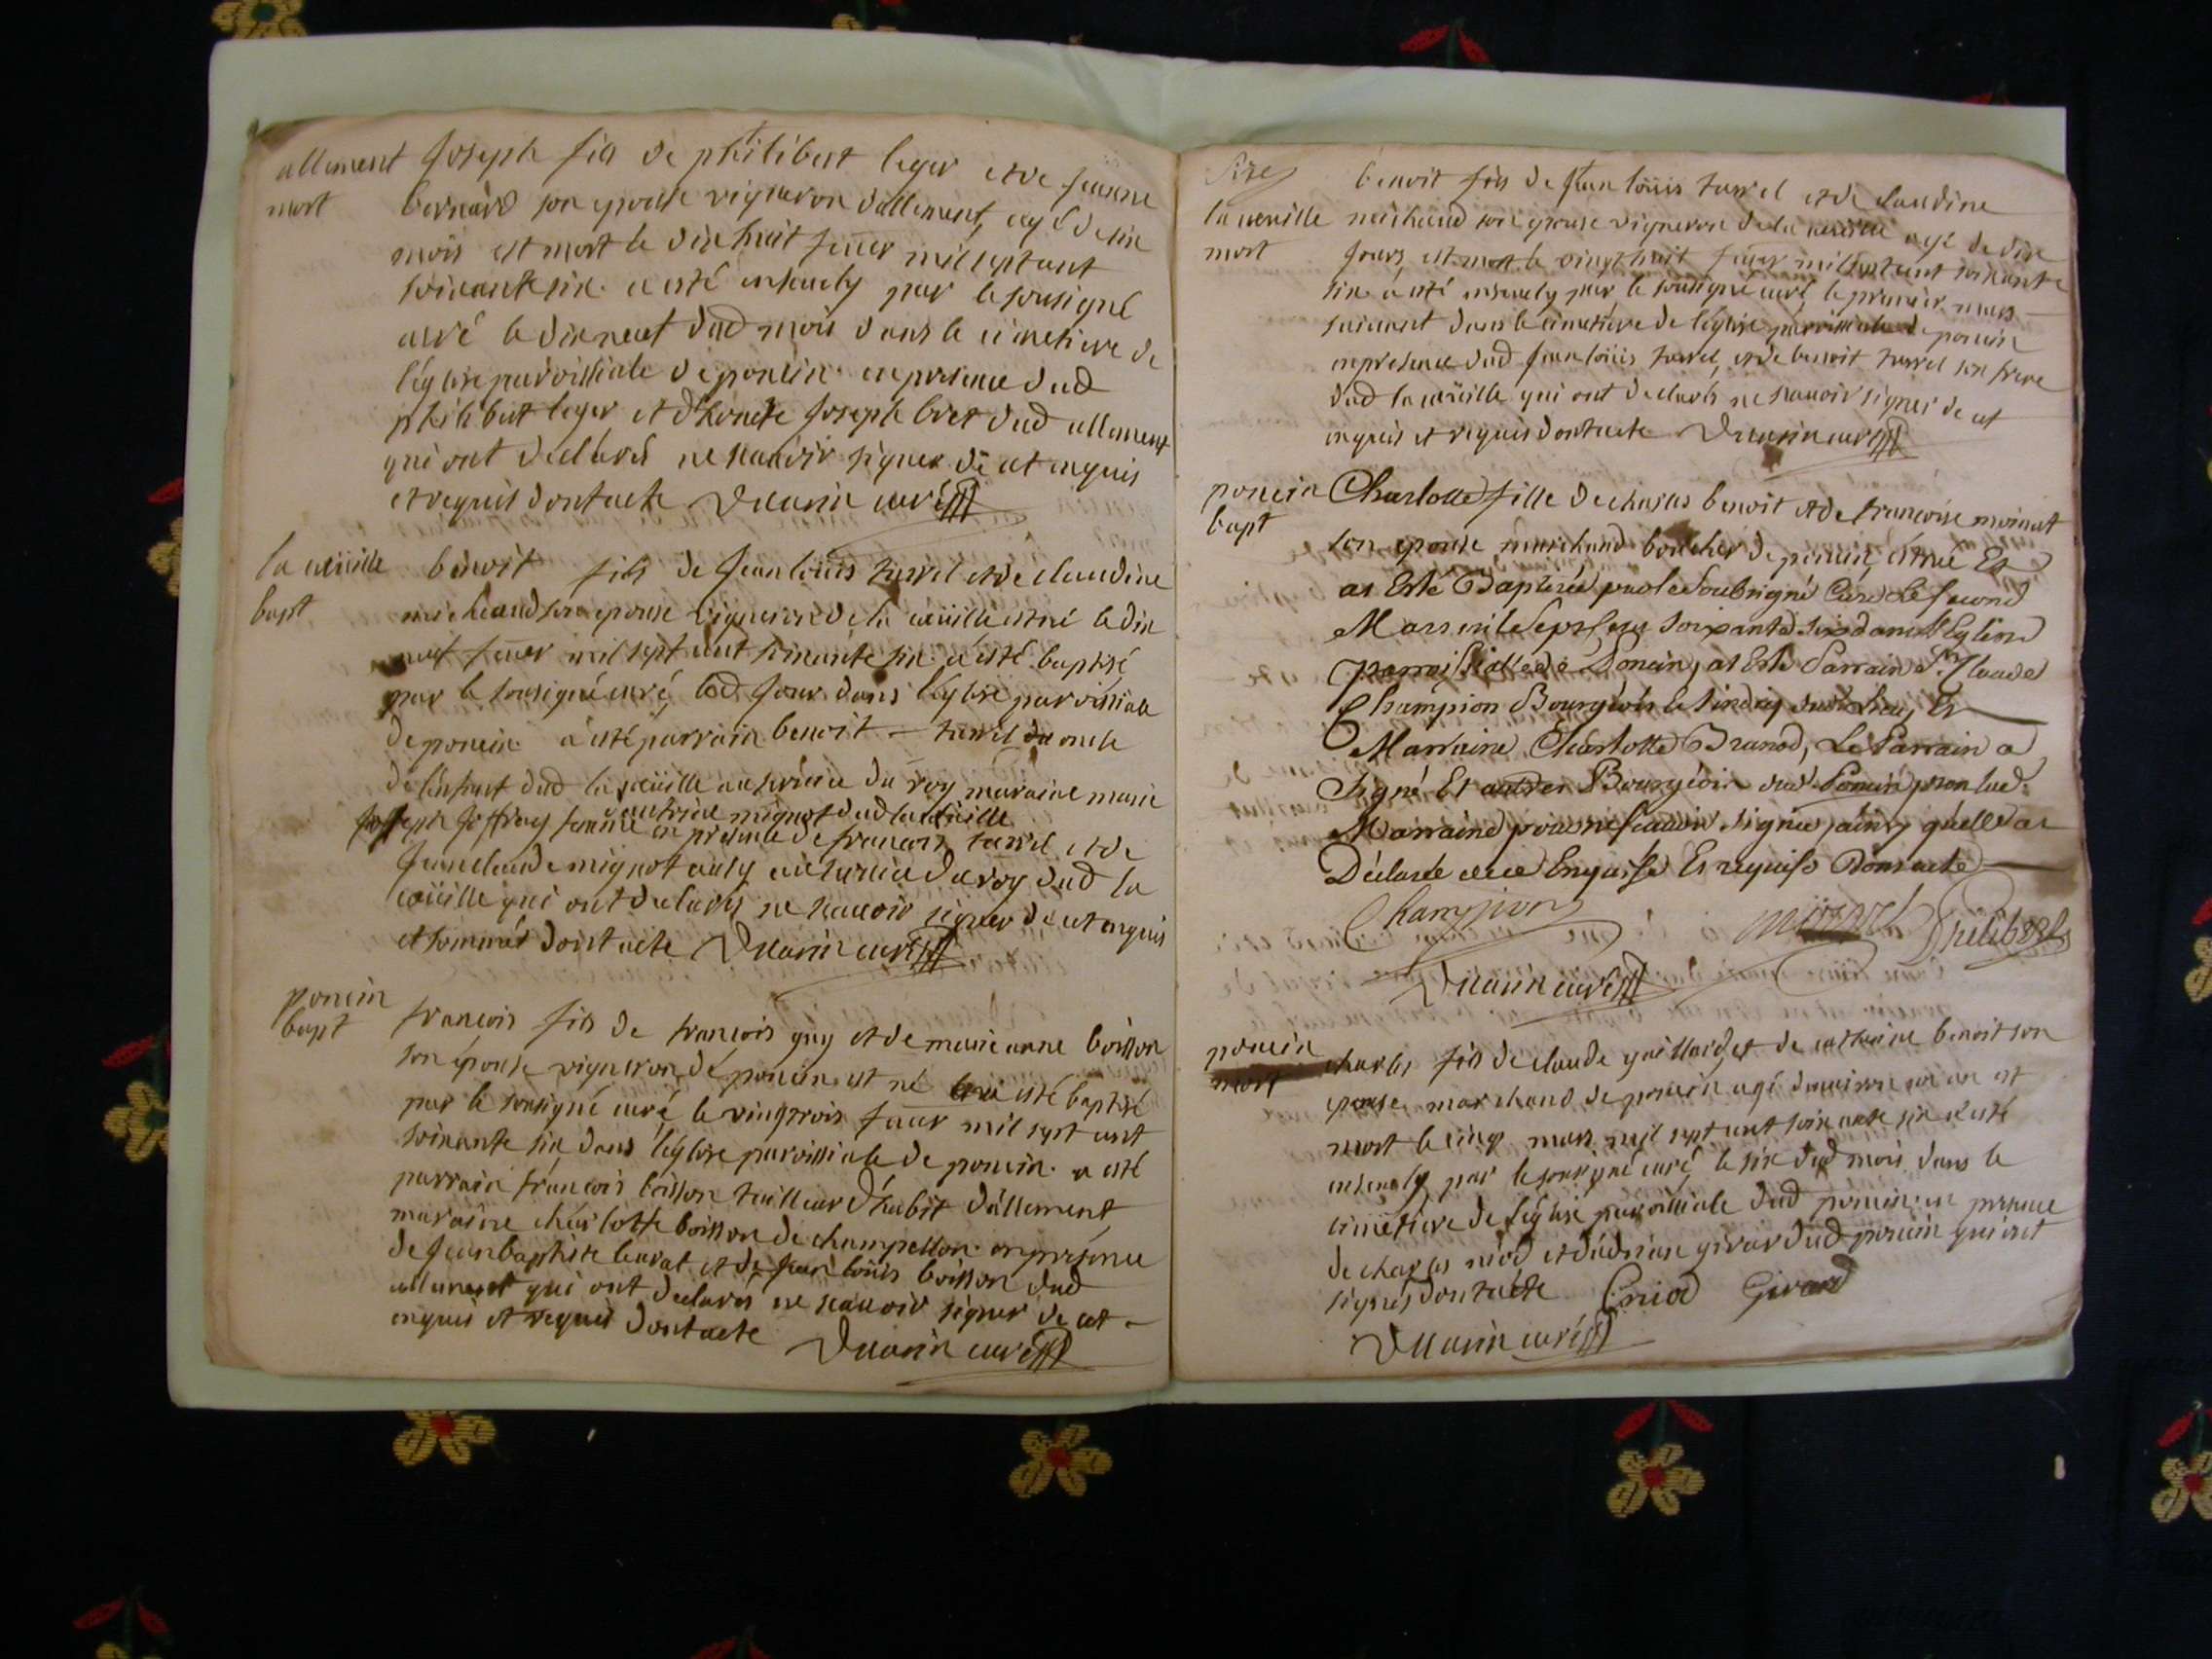 allement Joseph fils de philibert leger et de jeanne
mort bernard son epouse vigneron dallement, agé de six
mois est mort le dix huit feuer mil sept cent
soixante six. a esté enseuely par le sousigné
curé le dix neuf dud mois dans le cimetiere de
léglise paroissiale de poncin en presence dud
philibert leger et dhonete Joseph bret dud allement
qui ont declarés ne scauoir signer de ce enquis
et requis dont acte curé
la cueille benoit fils de Jean loüis turrel et de claudine
bapt michaud son epouse vigneron de la cueille est né le dix
neuf feuer mil sept cent soixante six. a esté baptisé
par le sousigné curé, led jour dans léglise paroissiale
de poncin. a esté parrain benoit turrel oncle
de lenfant dud la cueille au seruice du roy maraine marie
mignot dud la cueille
Joseph Joffray femme en presence de francois turrel et de
Jean claude mignot du roy dud la
cueille qui ont declarés ne scauoir signer de ce enquis
et sommés dont acte curé
poncin
bapt francois fils de francois guy et de marie anne boisson
son épouse vigneron de poncin est né esté baptisé
par le sousigné curé, le vingt trois feuer mil sept cent
soixante six dans léglise paroissiale de poncin. a esté
parrain francois boisson tailleur dhabit dallement
maraine charlotte boisson de champollon en présence
de Jean baptiste et de Jean loüis boisson dud
allement qui ont declarés ne scauoir signer de ce
enquis et requis dont acte curé
benoit fils de Jean loüis turrel et de claudine
la cueille michaud son epouse vigneron de la cueille agé de dix
mort jours, est mort le vingt huit feuer mil sept cent soixante
six a esté enseuely par le sousigné curé, le premier mars
suiuant dans le cimetiere de léglise paroissiale de poncin
en presence dud Jean loüis turrel, et de benoit turrel son frere
dud la cueille qui ont declarés ne scauoir signer de ce
enquis et requis dont acte curé
poncin Charlotte fille de charles benoit et de francoise moinat
bapt son epouse marchand boucher de poncin, est née Et
as Esté Baptisée par le Soubsigné Curé Le second
Mars mil Sept Cent Soixante six dans L'Eglise
parroissialle de Poncin, as Esté Parrain Sr Claude
Champion Bourgeois et sindiq dud Lieu, Et
Marraine Charlotte Brunod, Le Parrain a
Signé Et autres Bourgeois dud. Poncin, non lad.
Marraine pour ne scauoir signer, ainsy quelle at
Declarée de ce Enquise Et requise Dont acte
Champion Philibert
curé
poncin charles fils de claude guillard et de catherine benoit son
mort epouse marchand de poncin agé denuiron un an est
mort le cinq mars mil sept cent soixante six a esté
enseuely par le sousigné curé, le six dud mois dans le
cimetiere de léglise paroissiale dud poncin en presence
de charles niod et dadrian girard dud poncin qui ont
signés dont acte Cniod Girard
curé